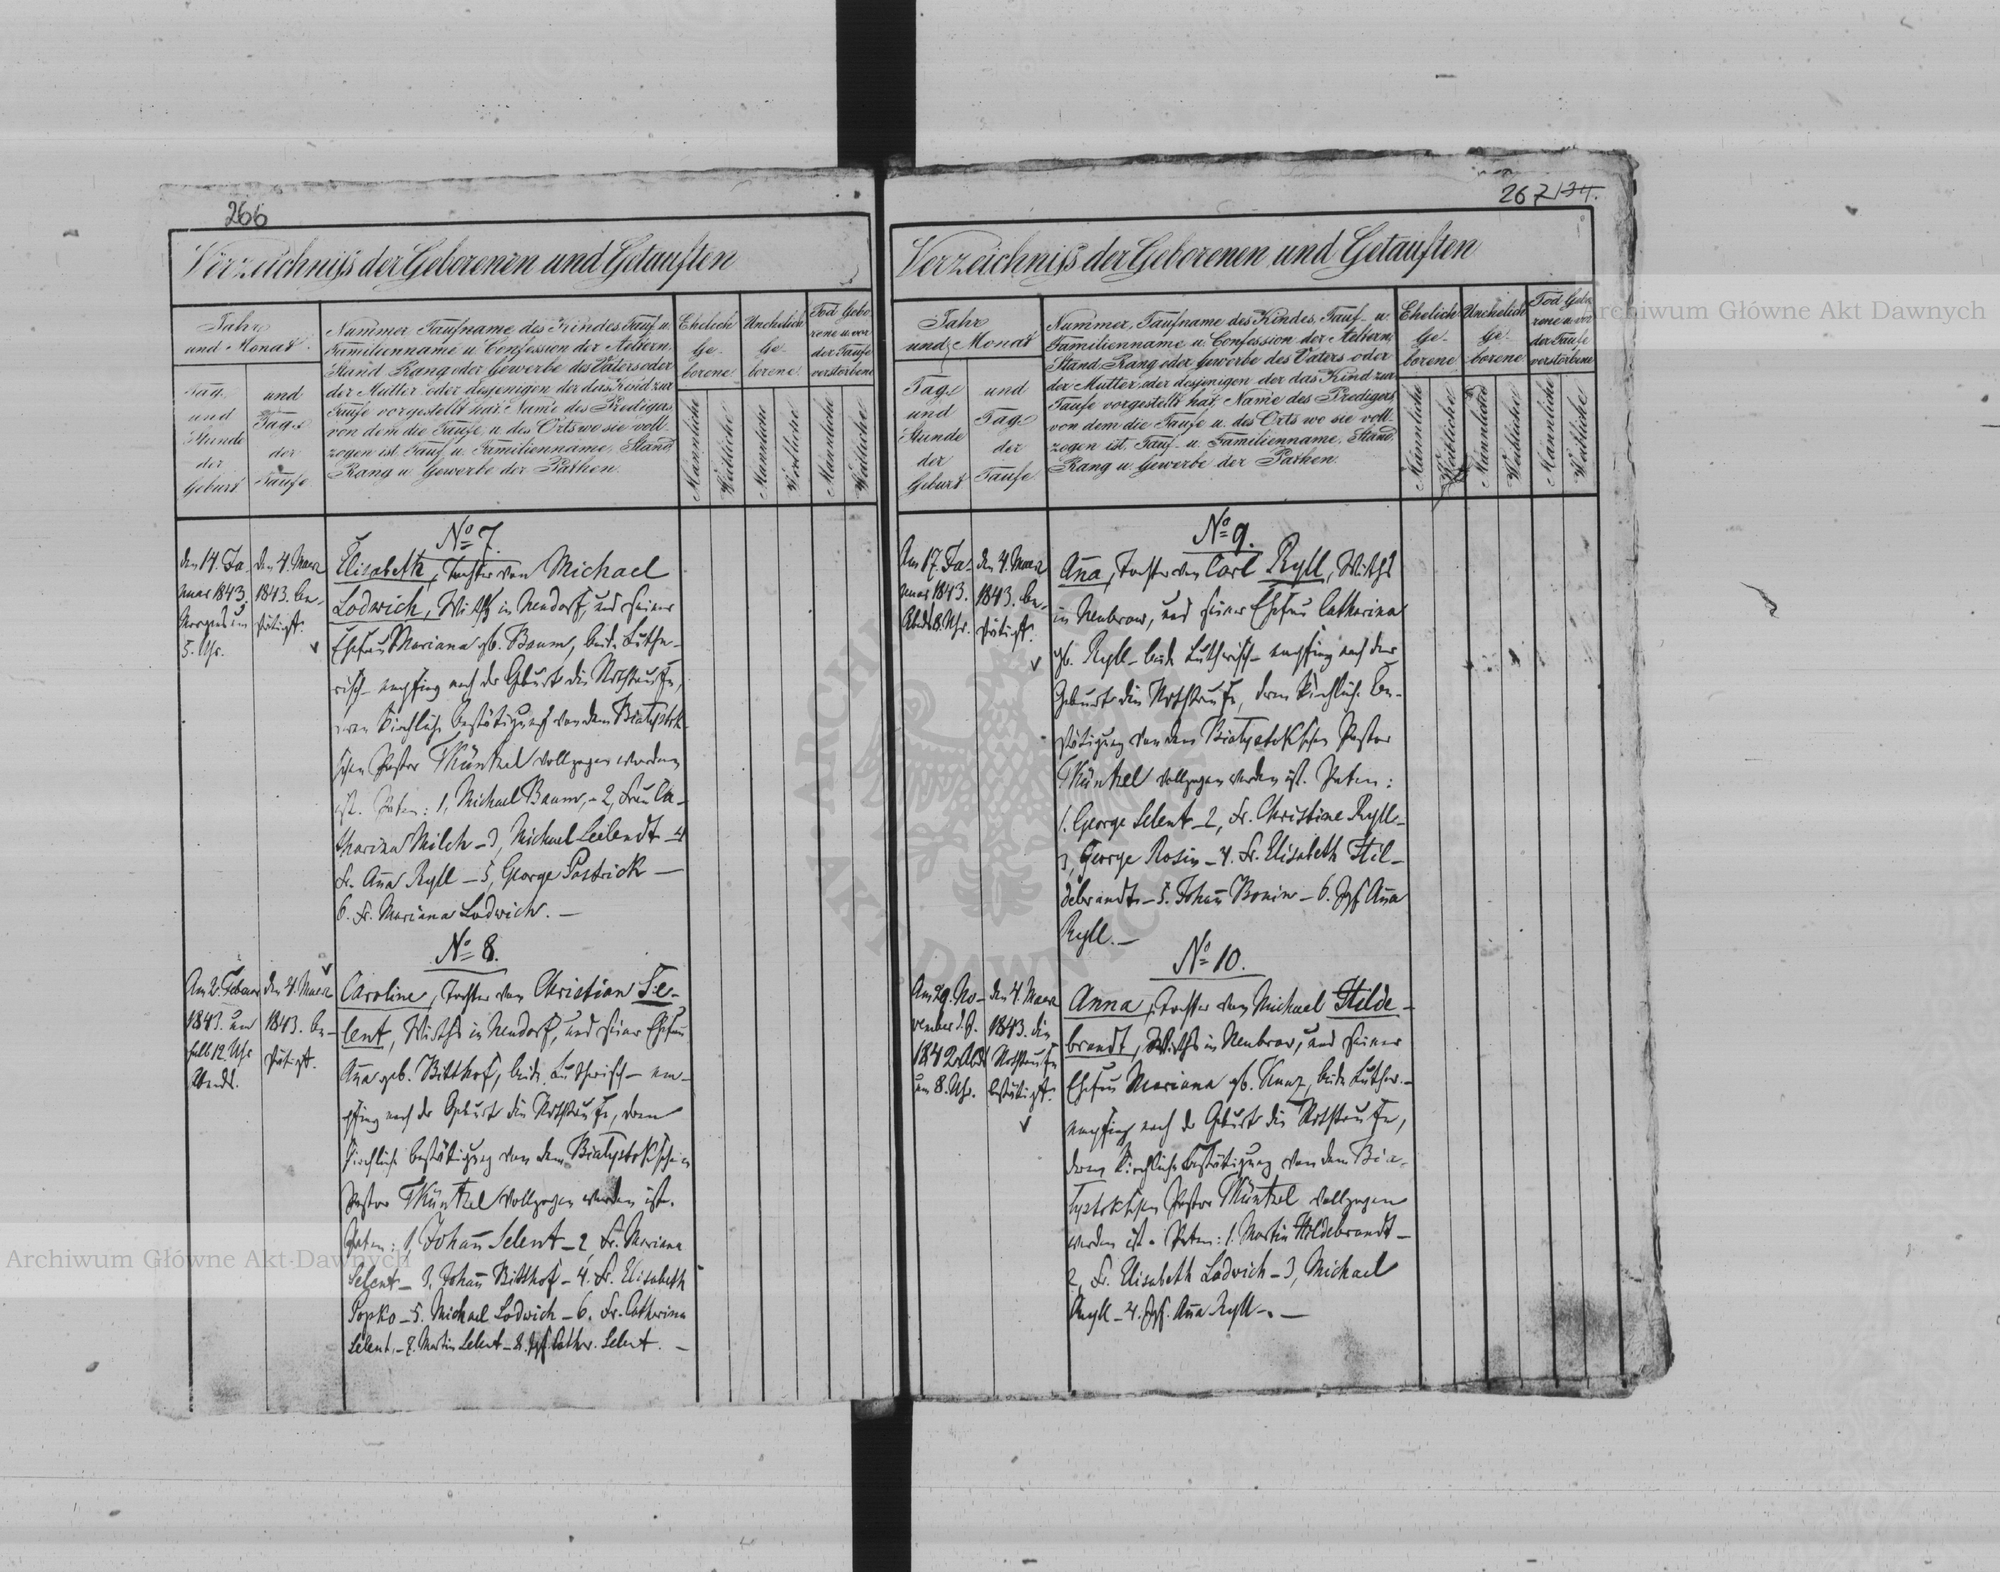 266
Verzeichniss der Geborenen und Getauften
Jahr
und Monat
Tag
und
Stunde
der
Geburt
und
Tag
der
Taufe
Nummer Taufname des Kindes, Tauf- u.
Familienname u Confession der Aeltern,
Stand Rang oder Gewerbe des Vaters oder
der Mutter oder desjenigen der das Kind zur
Taufe vorgestellt hat, Name des Predigers
von dem die Taufe u. des Orts wo sie voll-
zogen ist. Tauf- u. Familienname, Stand,
Rang u Gewerbe der Pathen.
Ehelich
Ge-
borene
Unehelich
Ge-
borene
Tod Gebo-
rene u. vor
der Taufe
verstorbene
Männliche
Weibliche
Männliche
Weibliche
Männliche
Weibliche
No 7.
den 14. Ja-
nuar 1843.
Morgens um
5. Uhr.
den 4. Maerz
1843. be-
stätigt.
Elisabeth, Tochter von Michael
Lodwich, Wirths in Neudorf, und seiner
Ehefrau Mariana geb. Baum, beide Luthe-
risch – empfing nach der Geburt die Nothtaufe,
deren kirchliche Bestätigung von dem Bialystok-
schen Pastor Küntzel vollzogen worden
ist. Paten: 1, Michael Baum, – 2, Frau Ca-
tharina Milch – 3, Michael Leilendt – 4
Fr. Anna Ryll – 5, George Pastrick –
6. Fr. Mariana Lodwich. –
No 8.
Am 2. Februar
1843. um
halb 12. Uhr
Abends.
den 4. Maerz
1843. be-
stätigt.
Caroline, Tochter von Christian Se-
lent, Wirths in Neudorf, und seiner Ehefrau
Anna geb. Bitthof, beide Lutherisch – em-
pfing nach der Geburt die Nothtaufe, deren
kirchliche Bestätigung von dem Bialystokschen
Pastor Küntzel vollzogen worden ist.
Paten: 1, Johann Selent – 2, Fr. Mariana
Selent – 3. Johann Bitthof – 4. Fr. Elisabeth
Popko – 5. Michael Lodwich – 6. Fr. Catharina
Selent. – 7. Martin Selent – 8. Jgf. Cathar. Selent. –
267 134.
Verzeichniss der Geborenen und Getauften
Jahr
und Monat
Tag
und
Stunde
der
Geburt
und
Tag
der
Taufe
Nummer, Taufname des Kindes, Tauf- u.
Familienname u. Confession der Aeltern,
Stand, Rang oder Gewerbe des Vaters oder
der Mutter, oder desjenigen der das Kind zur
Taufe vorgestellt hat, Name des Predigers
von dem die Taufe u. des Orts wo sie voll-
zogen ist. Tauf- u. Familienname, Stand,
Rang u. Gewerbe der Pathen.
Ehelich
Ge-
borene
Unehelich
Ge-
borene
Tod Gebo-
rene u. vor
der Taufe
verstorbene
Männliche
Weibliche
Männliche
Weibliche
Männliche
Weibliche
No 9.
Am 17. Ja-
nuar 1843.
Abends 8. Uhr.
den 4. Maerz
1843. be-
stätigt.
Anna, Tochter von Carl Ryll, Wirths
in Neubrow, und seiner Ehefrau Catharina
geb. Ryll – beide Lutherisch – empfing nach der
Geburt die Nothtaufe, deren kirchliche Be-
stätigung von dem Bialystokschen Pastor
Küntzel vollzogen worden ist. Paten:
1. George Selent – 2, Fr. Christine Ryll –
3, George Rosin – 4. Fr. Elisabeth Hil-
debrandt – 5. Johann Bonin – 6. Jgf. Anna
Ryll. –
No 10.
Am 29. No-
vember d. J.
1842 Abds
um 8. Uhr.
den 4. Maerz
1843. die
Nothtaufe
bestätigt.
Anna, Tochter von Michael Hilde-
brandt, Wirths in Neubrow, und seiner
Ehefrau Mariana geb. Kunz, beide Luther. –
empfing nach der Geburt die Nothtaufe,
deren kirchliche Bestätigung von dem Bia-
lystokschen Pastor Küntzel vollzogen
worden ist. Paten: 1. Martin Hildebrandt –
2, Fr. Elisabeth Lodwich – 3, Michael
Ryll – 4. Jgf. Anna Ryll. –
Archiwum Główne Akt Dawnych
Archiwum Główne Akt Dawnych